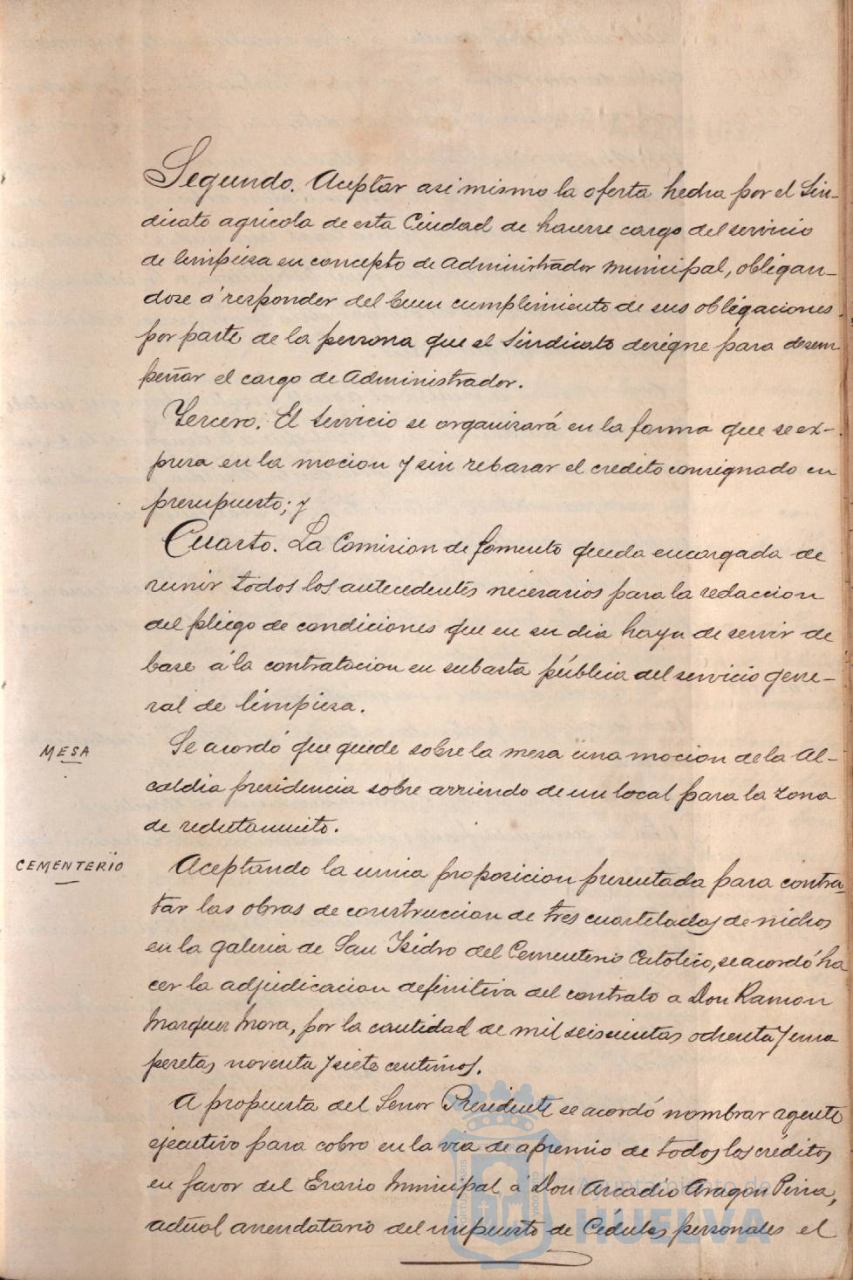 Segundo. Aceptar asi mismo la oferta hecha por el Sin-
dicato agricola de esta Ciudad de hacerse cargo del servicio
de limpieza en concepto de Administrador municipal, obligan-
dose á responder del buen cumplimiento de sus obligaciones
por parte de la persona que el Sindicato designe para desem
peñar el cargo de Administrador.
Tercero. El servicio se organizará en la forma que se ex-
presa en la mocion y sin rebasar el credito consignado en
presupuesto; y
Cuarto. La Comision de fomento queda encargada de
reunir todos los antecedentes necesarios para la redaccion
del pliego de condiciones que en su dia haya de servir de
base á la contratacion en subasta pública del servicio gene-
ral de limpieza.
MESA
Se acordó que quede sobre la mesa una mocion de la Al-
caldia presidencia sobre arriendo de un local para la zona
de reclutamiento.
CEMENTERIO
Aceptando la unica proposicion presentada para contra-
tar las obras de construccion de tres cuarteladas de nichos
en la galeria de San Isidro del Cementerio Catolico, se acordó ha
cer la adjudicacion definitiva del contrato a Don Ramon
Marquez Mora, por la cantidad de mil seiscientas ochenta y una
pesetas noventa y siete centimos.
A propuesta del Señor Presidente se acordó nombrar agente
ejecutivo para cobro en la via de apremio de todos los créditos
en favor del Erario municipal á Don Arcadio Aragon
actual arrendatario del impuesto de Cedulas personales el
Ayuntamiento de
HUELVA